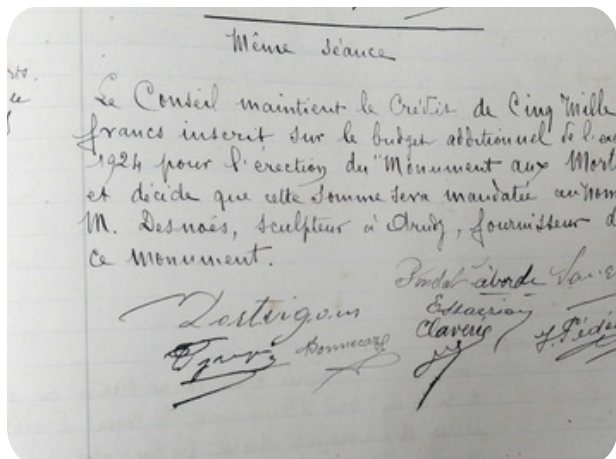 Même séance
Le Conseil maintient le Crédit de Cinq Mille
francs inscrit sur le budget additionnel de l'ex
1924 pour l'érection du "Monument aux Mort
et décide que cette somme sera mandatée au nom
M. Desnoës, sculpteur à Arudy, fournisseur d
ce monument.
Laborde
Claverie
Bonnecaze